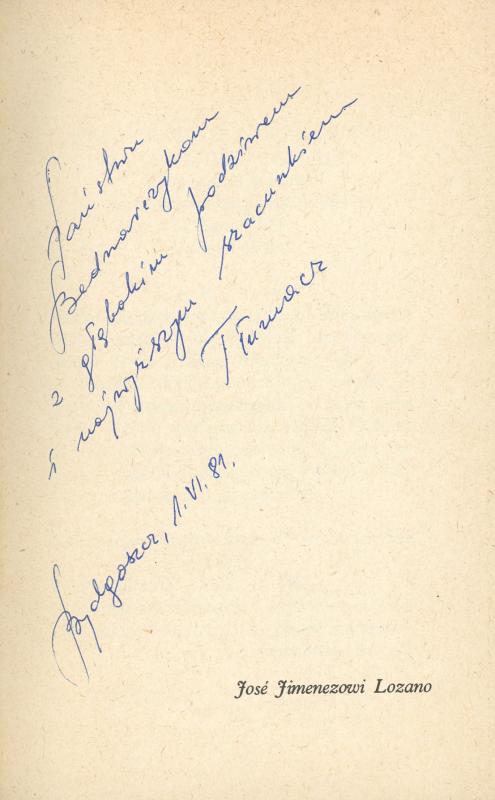 Państwu
Bednarczykom
z głębokim podziwem
i najwyższym szacunkiem
Tłumacz
Bydgoszcz, 1.VI.81.
José Jimenezowi Lozano